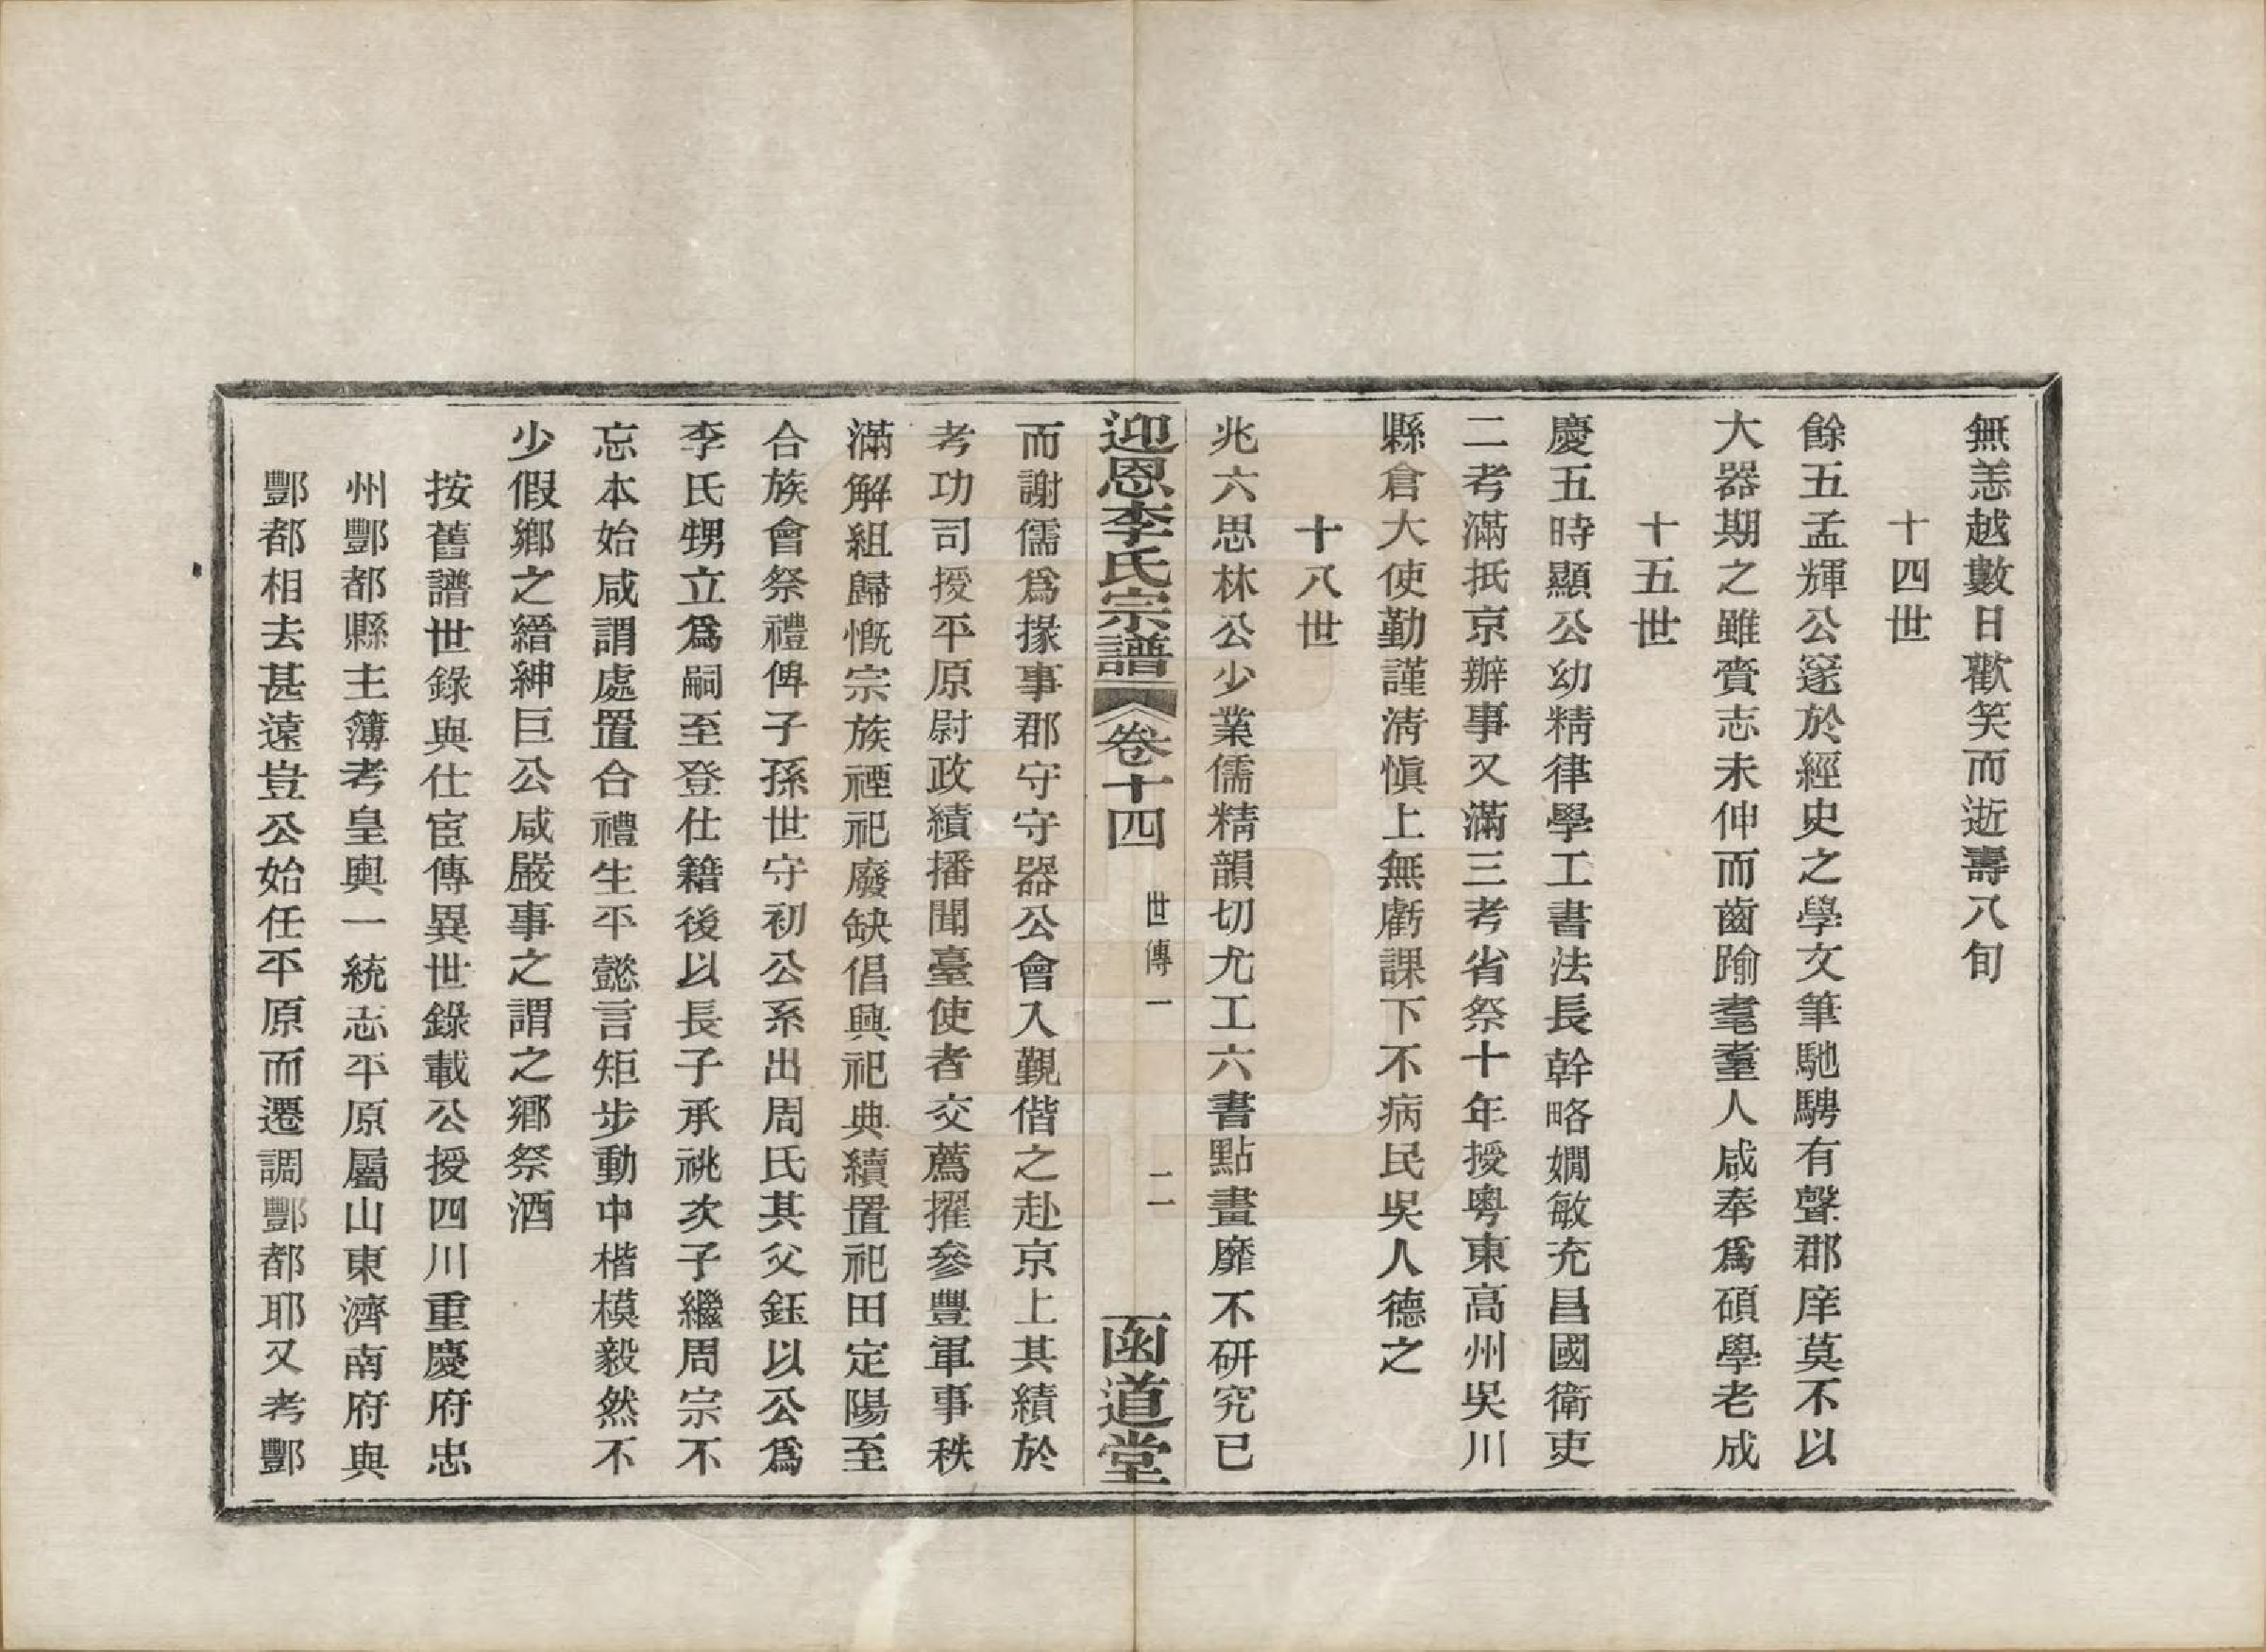 無恙越數日歡笑而逝壽八旬
十四世
餘五孟輝公邃於經史之學文筆馳騁有聲郡庠莫不以
大器期之雖賫志未伸而齒踰耄耋人咸奉爲碩學老成
十五世
慶五時顯公幼精律學工書法長幹略嫺敏充昌國衛吏
二考滿抵京辦事又滿三考省祭十年授粵東高州吳川
縣倉大使勤謹淸愼上無虧課下不病民吳人德之
十八世
兆六思林公少業儒精韻切尤工六書點畫靡不硏究已
迎恩李氏宗譜 卷十四 世傳一 二 函道堂
而謝儒爲掾事郡守守器公會入覲偕之赴京上其績於
考功司授平原尉政績播聞臺使者交薦擢參豐軍事秩
滿解組歸慨宗族禋祀廢缺倡興祀典續置祀田定陽至
合族會祭禮俾子孫世守初公系出周氏其父鈺以公爲
李氏甥立爲嗣至登仕籍後以長子承祧次子繼周宗不
忘本始咸謂處置合禮生平懿言矩步動中楷模毅然不
少假鄉之縉紳巨公咸嚴事之謂之鄉祭酒
按舊譜世錄與仕宦傳異世錄載公授四川重慶府忠
州酆都縣主簿考皇輿一統志平原屬山東濟南府與
酆都相去甚遠豈公始任平原而遷調酆都耶又考酆